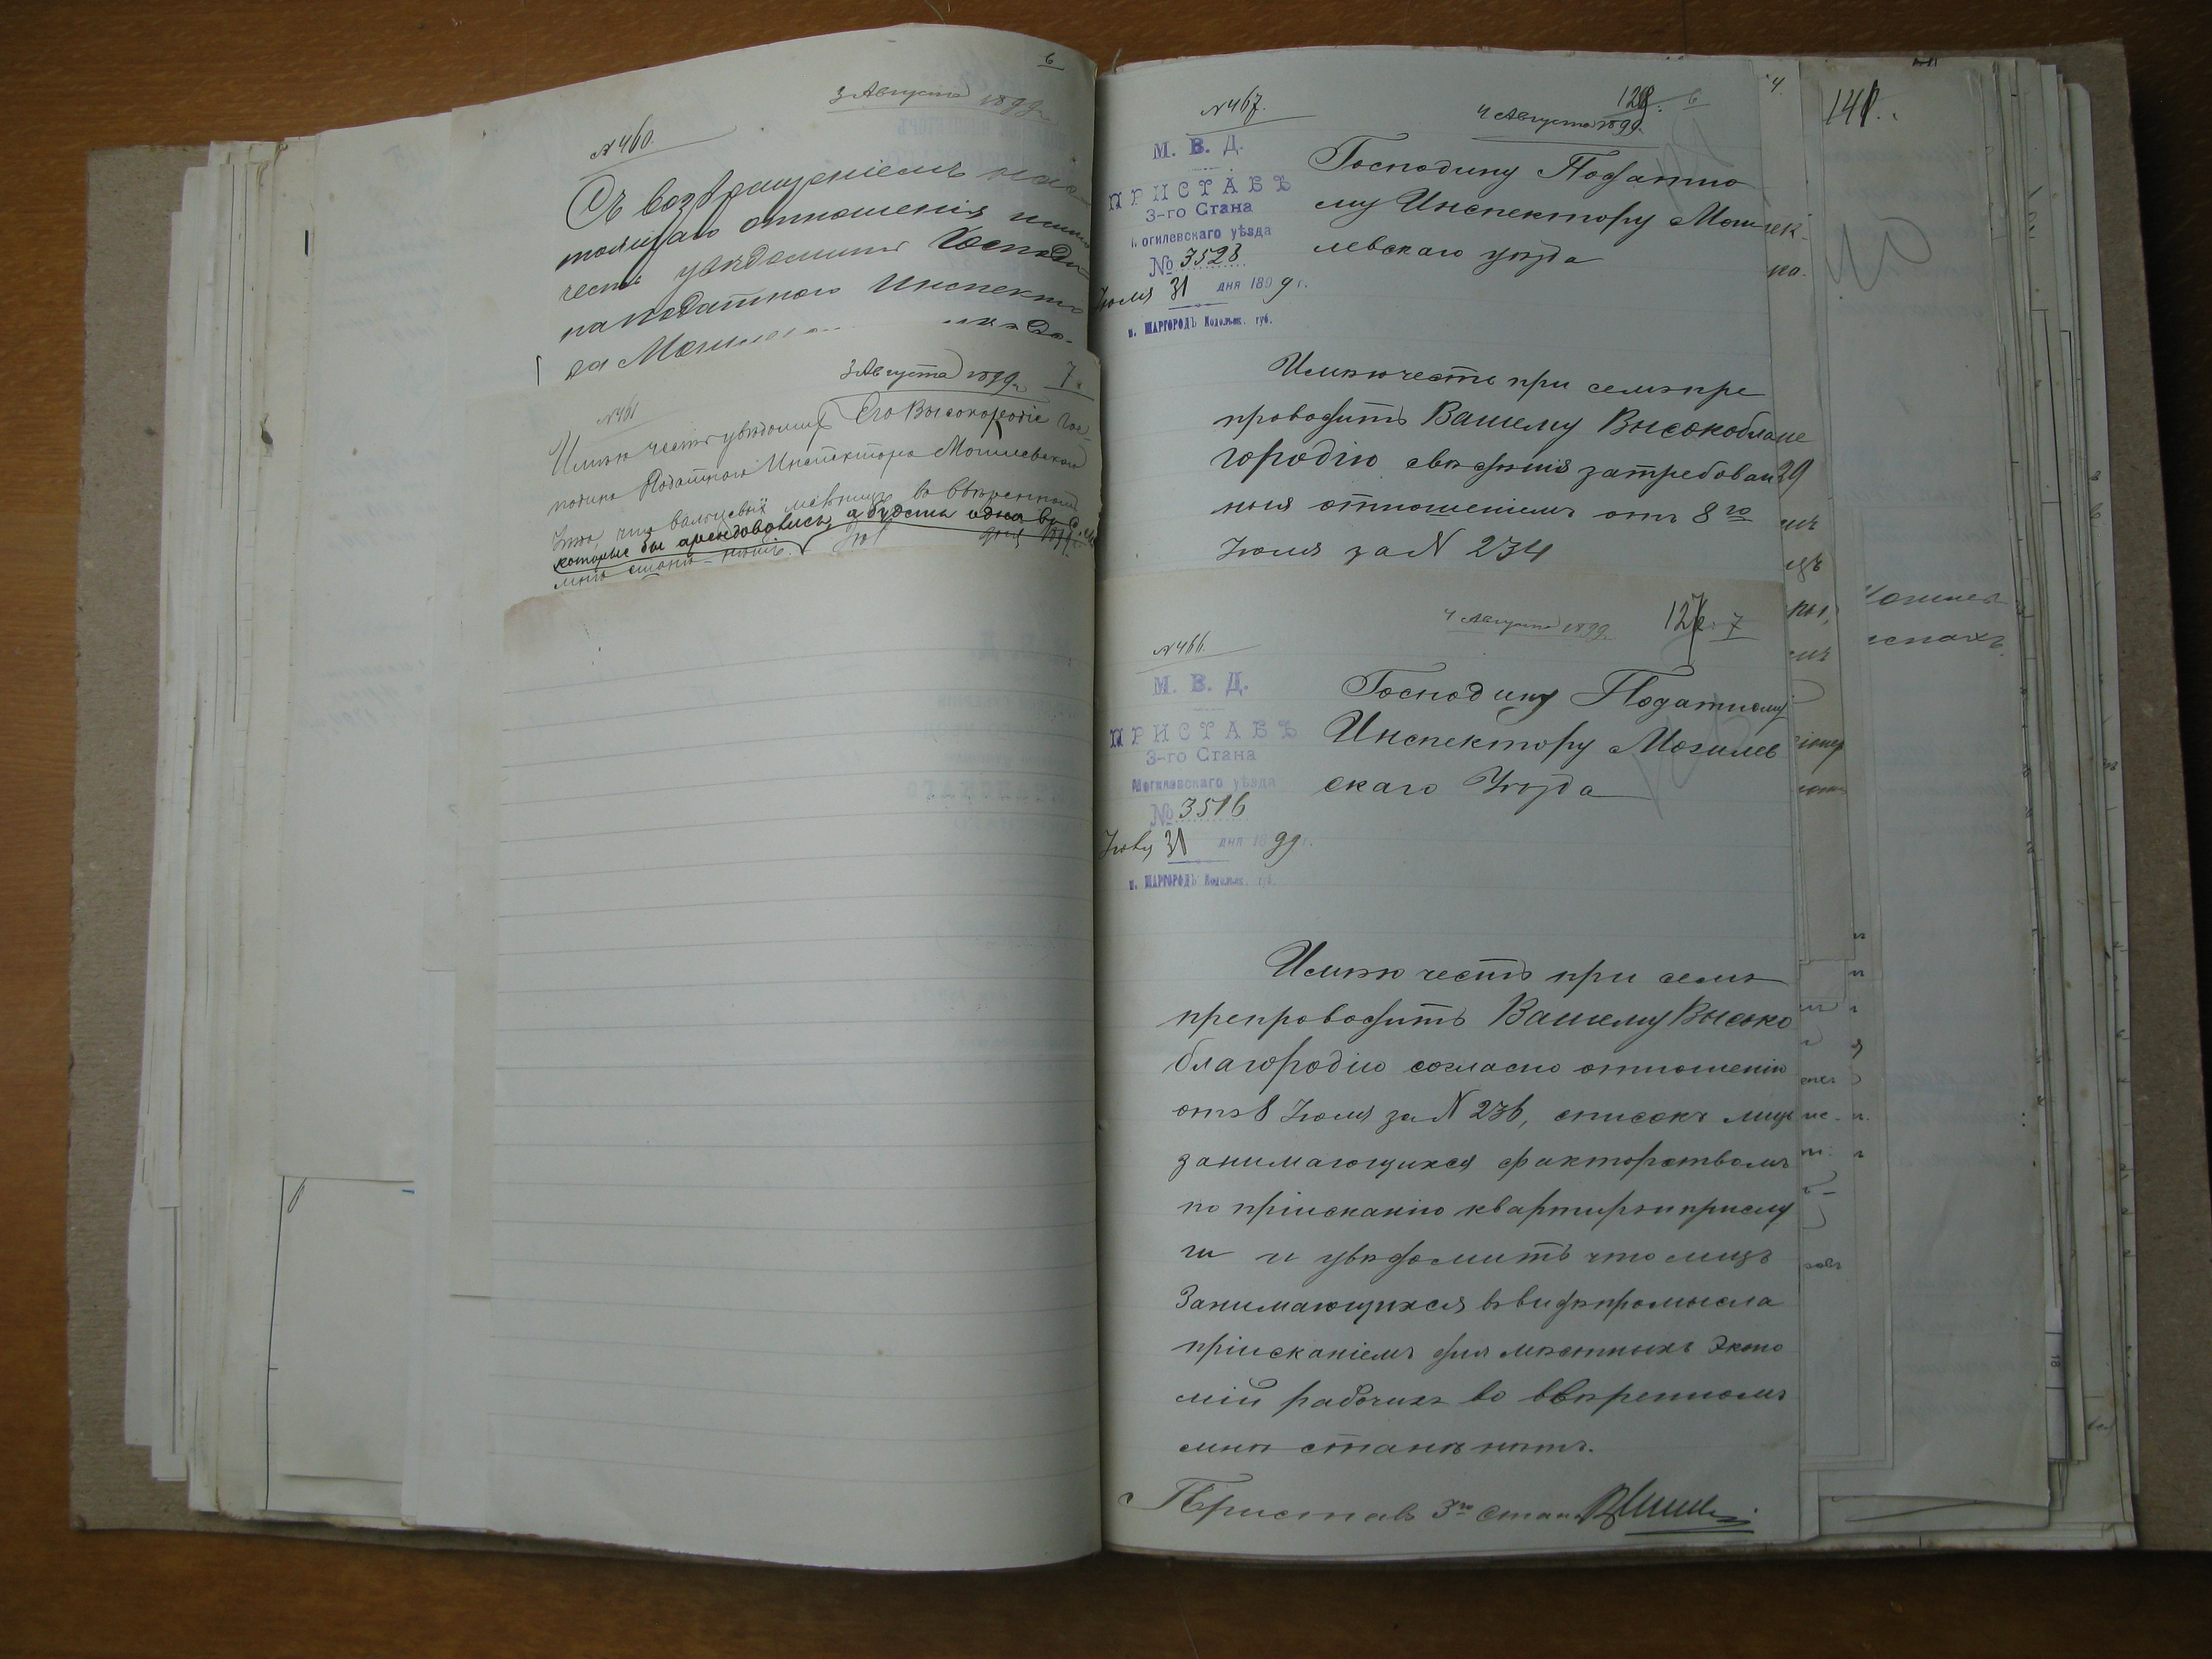 6
3 Августа 1899 г.
№ 460.
Съ возвращеніемъ нас
тоящаго отношенія имѣю
честь увѣдомить Господи
на Податного Инспекто
ра Могилев
3 Августа 1899 г. 7.
№ 461
Имѣю честь увѣдомить Его Высокородіе Гос-
подина Податного Инспектора Могилевскаго
что вальцевыхъ мельницъ во ввѣренномъ
которые бы арендовались,
мнѣ станѣ нѣтъ.
№ 467.
128. 6
4 Августа 1899.
М. В. Д.
ПРИСТАВЪ
3-го Стана
Могилевскаго уѣзда
№ 3528
Іюля 31 дня 1899 г.
м. ШАРГОРОДЪ Подольск. губ.
Господину Податно
му Инспектору Моги
левскаго уѣзда
Имѣю честь при семъ пре
проводить Вашему Высокобла
городію свѣдѣнія затребован
ныя отношеніемъ отъ 8го
Іюля за № 234
4 Августа 1899. 127. 7
№ 466.
М. В. Д.
ПРИСТАВЪ
3-го Стана
Могилевскаго уѣзда
№ 3516
31 дня 1899 г.
м. ШАРГОРОДЪ Подольск. губ.
Господину Податному
Инспектору Могилев
скаго Уѣзда
Имѣю честь при семъ
препроводить Вашему Высоко
благородію согласно отношенію
отъ 8 Іюля за № 236, списокъ лицъ
занимающихся факторствомъ
по пріисканію квартиръ и прислу
ги и увѣдомить что лицъ
Занимающихся въ видѣ промысла
пріисканіемъ для мѣстныхъ Эконо
мій рабочихъ во ввѣренномъ
мнѣ станѣ нѣтъ.
Приставъ 3го Стана
4.
29
141.